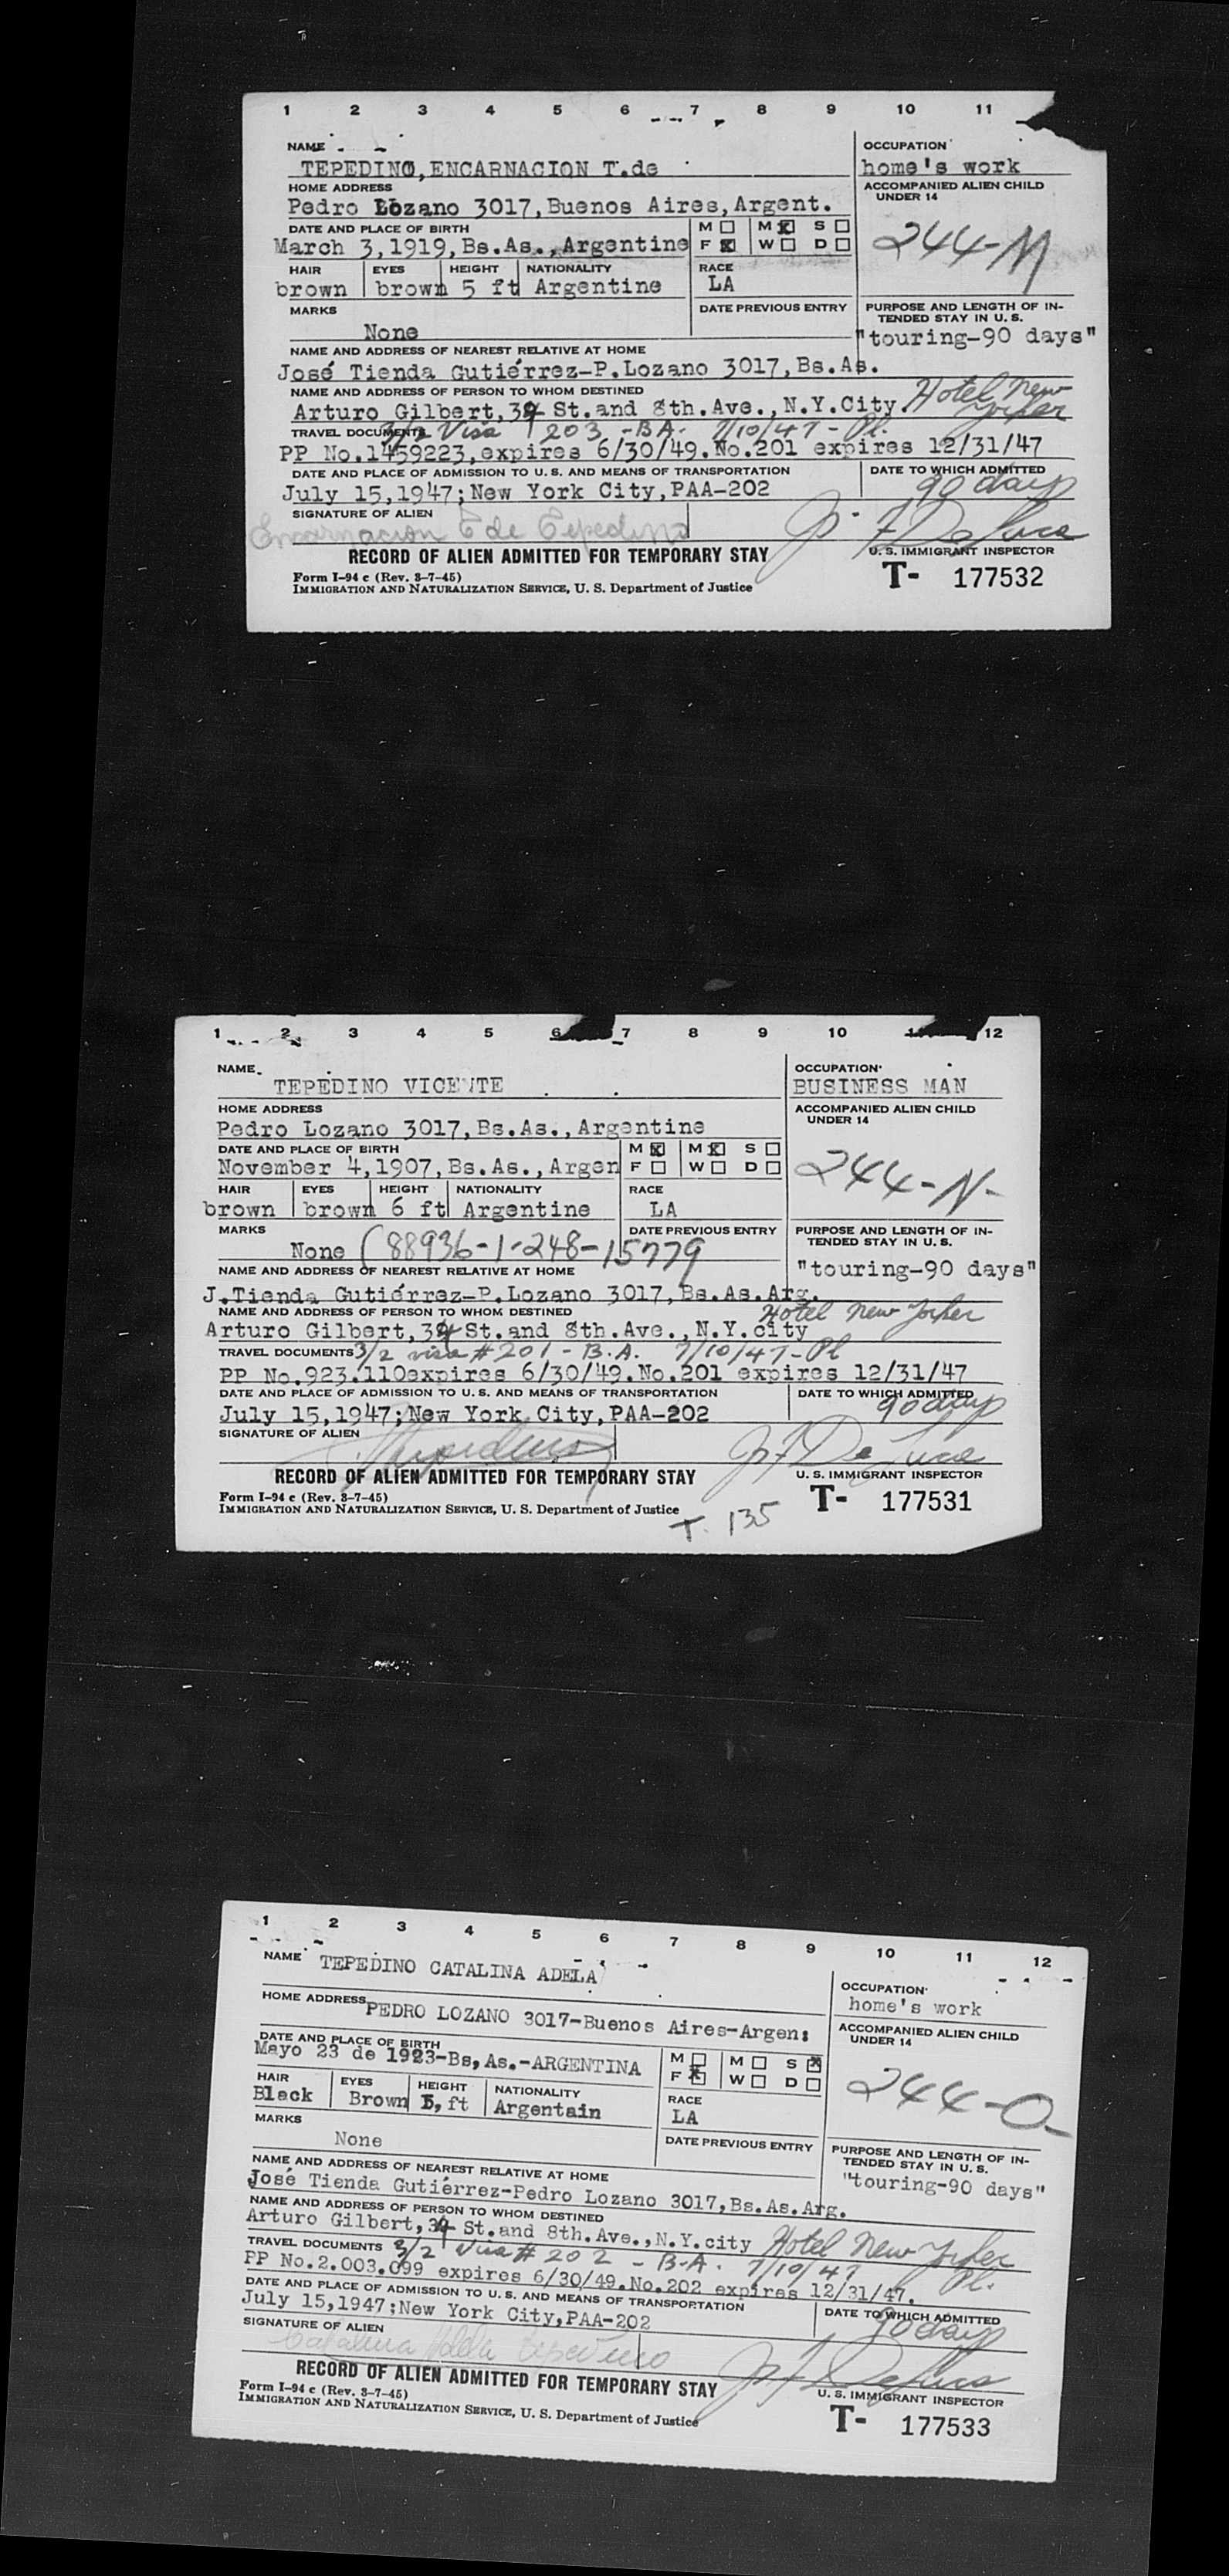 1 2 3 4 5 6 7 8 9 10 11
NAME
OCCUPATION
TEPEDINO, ENCARNACION T.de
home's work
HOME ADDRESS
ACCOMPANIED ALIEN CHILD UNDER 14
Pedro Lozano 3017, Buenos Aires, Argent.
DATE AND PLACE OF BIRTH
M ☐ M ☒ S ☐
244-M
March 3, 1919, Bs.As., Argentine
F ☒ W ☐ D ☐
HAIR EYES HEIGHT NATIONALITY RACE
brown brown 5 ft Argentine LA
MARKS
DATE PREVIOUS ENTRY
PURPOSE AND LENGTH OF IN-
TENDED STAY IN U. S.
None
"touring-90 days"
NAME AND ADDRESS OF NEAREST RELATIVE AT HOME
José Tienda Gutiérrez-P.Lozano 3017, Bs.As.
NAME AND ADDRESS OF PERSON TO WHOM DESTINED
Hotel New Yorker
Arturo Gilbert, 34 St.and 8th.Ave., N.Y.City.
TRAVEL DOCUMENTS 3/2 Visa 203 - BA. 7/10/47 - Pl.
PP No.1459223, expires 6/30/49. No.201 expires 12/31/47
DATE AND PLACE OF ADMISSION TO U. S. AND MEANS OF TRANSPORTATION
DATE TO WHICH ADMITTED
July 15, 1947; New York City, PAA-202
90 days
SIGNATURE OF ALIEN
Encarnacion T de Tepedino
RECORD OF ALIEN ADMITTED FOR TEMPORARY STAY
U. S. IMMIGRANT INSPECTOR
Form I-94 c (Rev. 3-7-45)
IMMIGRATION AND NATURALIZATION SERVICE, U. S. Department of Justice
T- 177532
1 2 3 4 5 6 7 8 9 10 11 12
NAME
OCCUPATION
TEPEDINO VICENTE
BUSINESS MAN
HOME ADDRESS
ACCOMPANIED ALIEN CHILD UNDER 14
Pedro Lozano 3017, Bs.As., Argentine
DATE AND PLACE OF BIRTH
M ☒ M ☒ S ☐
244-N-
November 4, 1907, Bs.As., Argen
F ☐ W ☐ D ☐
HAIR EYES HEIGHT NATIONALITY RACE
brown brown 6 ft Argentine LA
MARKS
DATE PREVIOUS ENTRY
PURPOSE AND LENGTH OF IN-
TENDED STAY IN U. S.
None (88936-1-248-15779
"touring-90 days"
NAME AND ADDRESS OF NEAREST RELATIVE AT HOME
J.Tienda Gutiérrez-P.Lozano 3017, Bs.As.Arg.
NAME AND ADDRESS OF PERSON TO WHOM DESTINED
Hotel New Yorker
Arturo Gilbert, 34 St.and 8th.Ave., N.Y.city
TRAVEL DOCUMENTS 3/2 visa # 201 - B.A. 7/10/47 - Pl
PP No.923.110 expires 6/30/49. No.201 expires 12/31/47
DATE AND PLACE OF ADMISSION TO U. S. AND MEANS OF TRANSPORTATION
DATE TO WHICH ADMITTED
July 15, 1947; New York City, PAA-202
90 days
SIGNATURE OF ALIEN
RECORD OF ALIEN ADMITTED FOR TEMPORARY STAY
U. S. IMMIGRANT INSPECTOR
Form I-94 c (Rev. 3-7-45)
IMMIGRATION AND NATURALIZATION SERVICE, U. S. Department of Justice
T- 177531
T. 135
1 2 3 4 5 6 7 8 9 10 11 12
NAME TEPEDINO CATALINA ADELA
OCCUPATION
home's work
HOME ADDRESS PEDRO LOZANO 3017-Buenos Aires-Argen:
ACCOMPANIED ALIEN CHILD UNDER 14
DATE AND PLACE OF BIRTH
M ☐ M ☐ S ☒
Mayo 23 de 1923-Bs,As.-ARGENTINA
F ☒ W ☐ D ☐
244-O-
HAIR EYES HEIGHT NATIONALITY RACE
Black Brown 5, ft Argentain LA
MARKS
DATE PREVIOUS ENTRY
PURPOSE AND LENGTH OF IN-
TENDED STAY IN U. S.
None
"touring-90 days"
NAME AND ADDRESS OF NEAREST RELATIVE AT HOME
José Tienda Gutiérrez-Pedro Lozano 3017, Bs.As.Arg.
NAME AND ADDRESS OF PERSON TO WHOM DESTINED
Arturo Gilbert, 34 St.and 8th.Ave., N.Y.city Hotel New Yorker
TRAVEL DOCUMENTS 3/2 visa # 202 - B.A. 7/10/47 Pl.
PP No.2.003.099 expires 6/30/49. No.202 expires 12/31/47.
DATE AND PLACE OF ADMISSION TO U. S. AND MEANS OF TRANSPORTATION
DATE TO WHICH ADMITTED
July 15, 1947; New York City, PAA-202
90 days
SIGNATURE OF ALIEN
Catalina Adela Tepedino
RECORD OF ALIEN ADMITTED FOR TEMPORARY STAY
U. S. IMMIGRANT INSPECTOR
Form I-94 c (Rev. 3-7-45)
IMMIGRATION AND NATURALIZATION SERVICE, U. S. Department of Justice
T- 177533